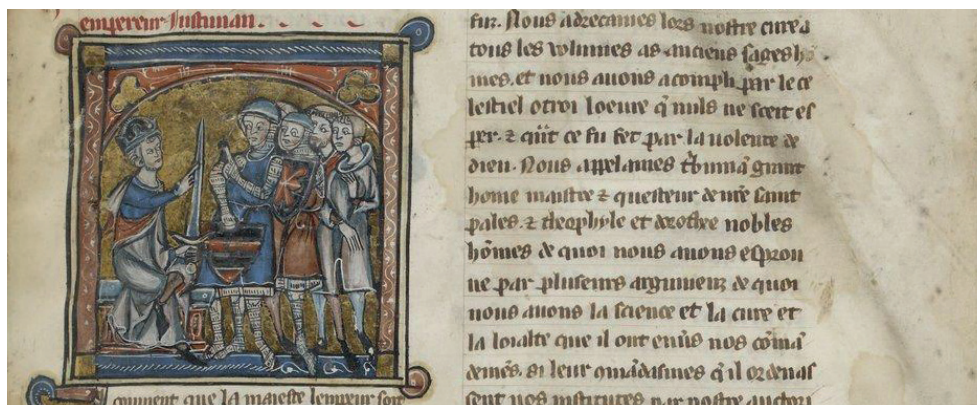 empereur Iustinian.
couuient que la maieste lempeur soit
sur. Nous adrecames lors nostre cure a
tous les volumes as anciens sages ho
mes. et nous auons acompli par le ce
lestiel otroi loeure q̃ nuls ne scet es
per. ⁊ q̃nt ce fu fet par la uolente de
dieu. Nous appelames grant
home maistre ⁊ questeur de nr̃e saint
pales. ⁊ theophyle et dorothe nobles
hõmes de quoi nous auons esprou
ue par plusieurs argumenz de quoi
nous auons la science et la cure et
la loialte que il ont enũs nos cõmã
demẽs. si leur cõmãdasmes q̃ il ordenas
sent nos institutes par nostre auctori